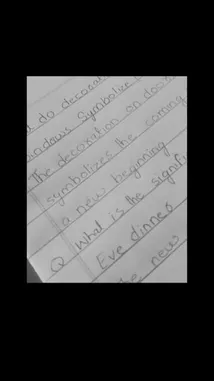 t do decorat
indows Symbolize
The decoration on door
symbolizes the coming
a new beginning
Q What is the signif
Eve dinner
the new